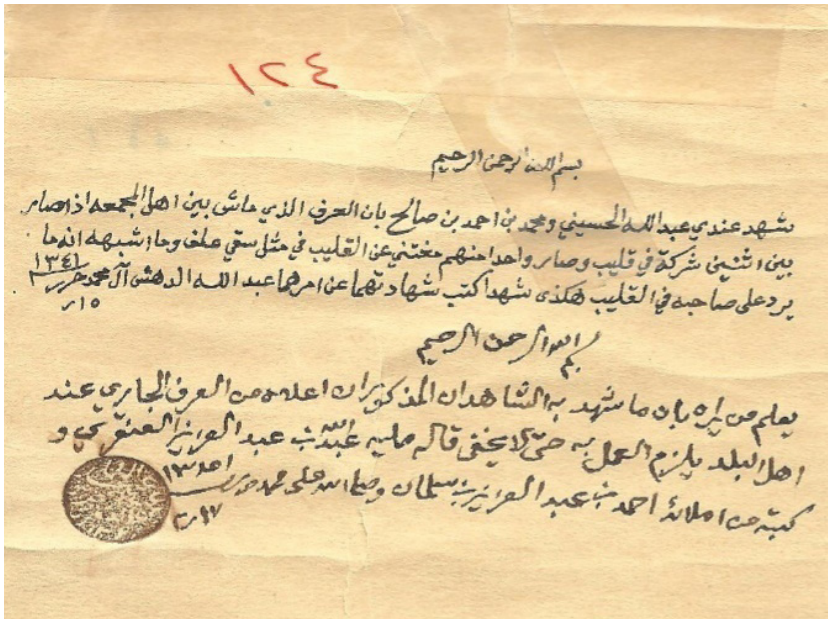 ١٢٤
بسم الله الرحمن الرحيم
شهد عندي عبد الله الحسيني ومحمد بن احمد بن صالح بان العرف الذي ماش بين اهل المجمعه اذا صار
بين اثنين شركة في قليب وصار واحد منهم مغتني عن القليب في مثل سقي علف وما اشبهه انه ما
يرد على صاحبه في القليب هكذى شهدا كتب شهادتهما عن امرهما عبد الله الدهش آل محمد حرر ١٣٤١
١٥ ر
بسم الله الرحمن الرحيم
يعلم من يراه بان ما شهد به الشاهدان المذكوران اعلاه من العرف الجاري عند
اهل البلد يلزم العمل به حتى لا يخفى قاله مليه عبد الله بن عبد العزيز العنقري و
كتبه من املائه احمد بن عبد العزيز بن سلمان وصلى الله على محمد